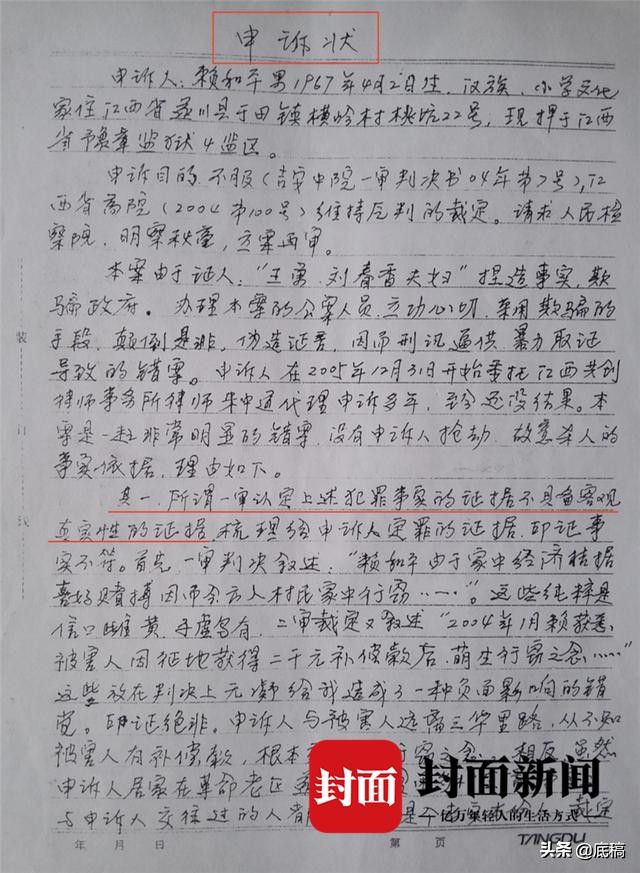 申诉状
申诉人：赖和平男1967年4月2日生，汉族，小学文化
家住江西省遂川县于田镇横岭村桃坑22号，现押于江西
省豫章监狱4监区。
申诉目的：不服（吉安中院一审判决书04年第7号），江
西省高院（2004第100号）维持原判的裁定。请求人民检
察院，明察秋毫，立案再审。
本案由于证人："王勇、刘春香夫妇"捏造事实，欺
骗政府。办理本案的公安人员，立功心切，采用欺骗的
手段，颠倒是非，伪造证言，因而刑讯逼供、暴力取证
导致的错案。申诉人在2005年12月31日开始委托江西共创
律师事务所律师朱中道代理申诉多年，至今还没结果。本
案是一起非常明显的错案，没有申诉人抢劫、故意杀人的
事实依据，理由如下。
其一，所谓一审认定上述犯罪事实的证据不具备客观
真实性的证据，梳理给申诉人定罪的证据，印证事
实不符。首先，一审判决叙述："赖和平由于家中经济桔据
喜好赌搏因而多去入村民家中行窃……"。这些纯粹是
信口雌黄，子虚乌有，二审裁定又叙述"2004年1月赖
被害人因征地获得二千元补偿款后，萌生行窃之念……"
这些放在判决上无疑给我造成了一种负面影响的错
觉。印证绝非。申诉人与被害人远离三华里路，从不知
被害人有补偿款，根本 行窃之念 相反虽然
申诉人居家在革命老区
与申诉人交往过的人都 是个 裁定
装 订 线
年 月 日 第 页 TANGDU
封面 封面新闻
亿万年轻人的生活方式
头条 @底稿